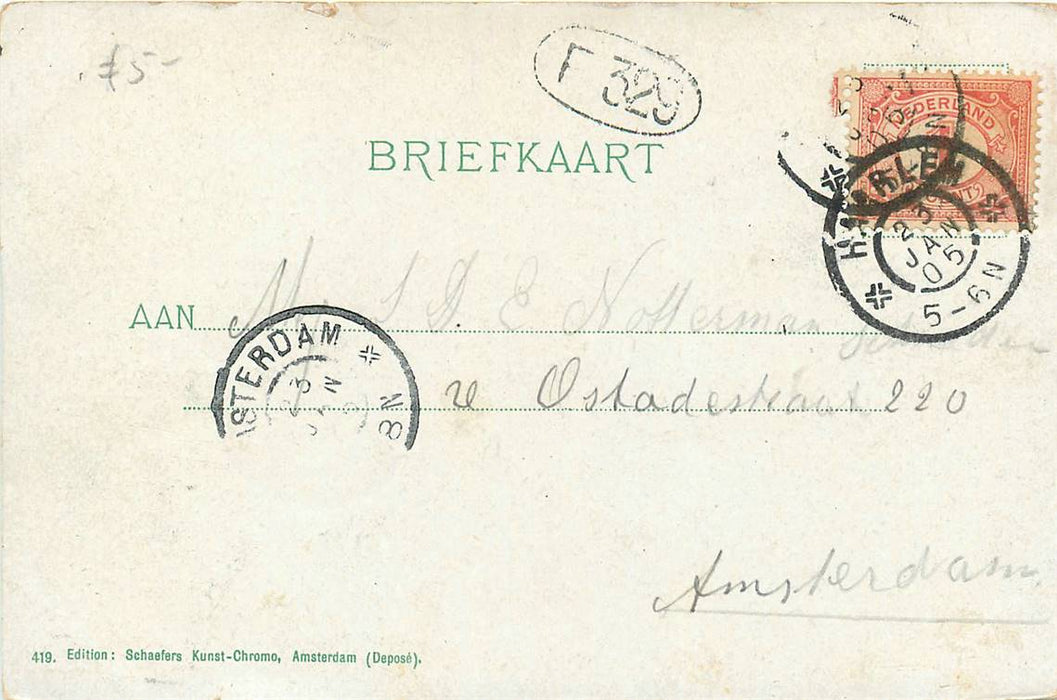 £5-
F 329
NEDERLAND
CENT
HAARLEM
23
JAN
05
5-6N
BRIEFKAART
AAN
L D E Notterman
STERDAM
23
JAN
8N
2e Ostadestraat 220
Amsterdam
419. Edition: Schaefers Kunst-Chromo, Amsterdam (Deposé).